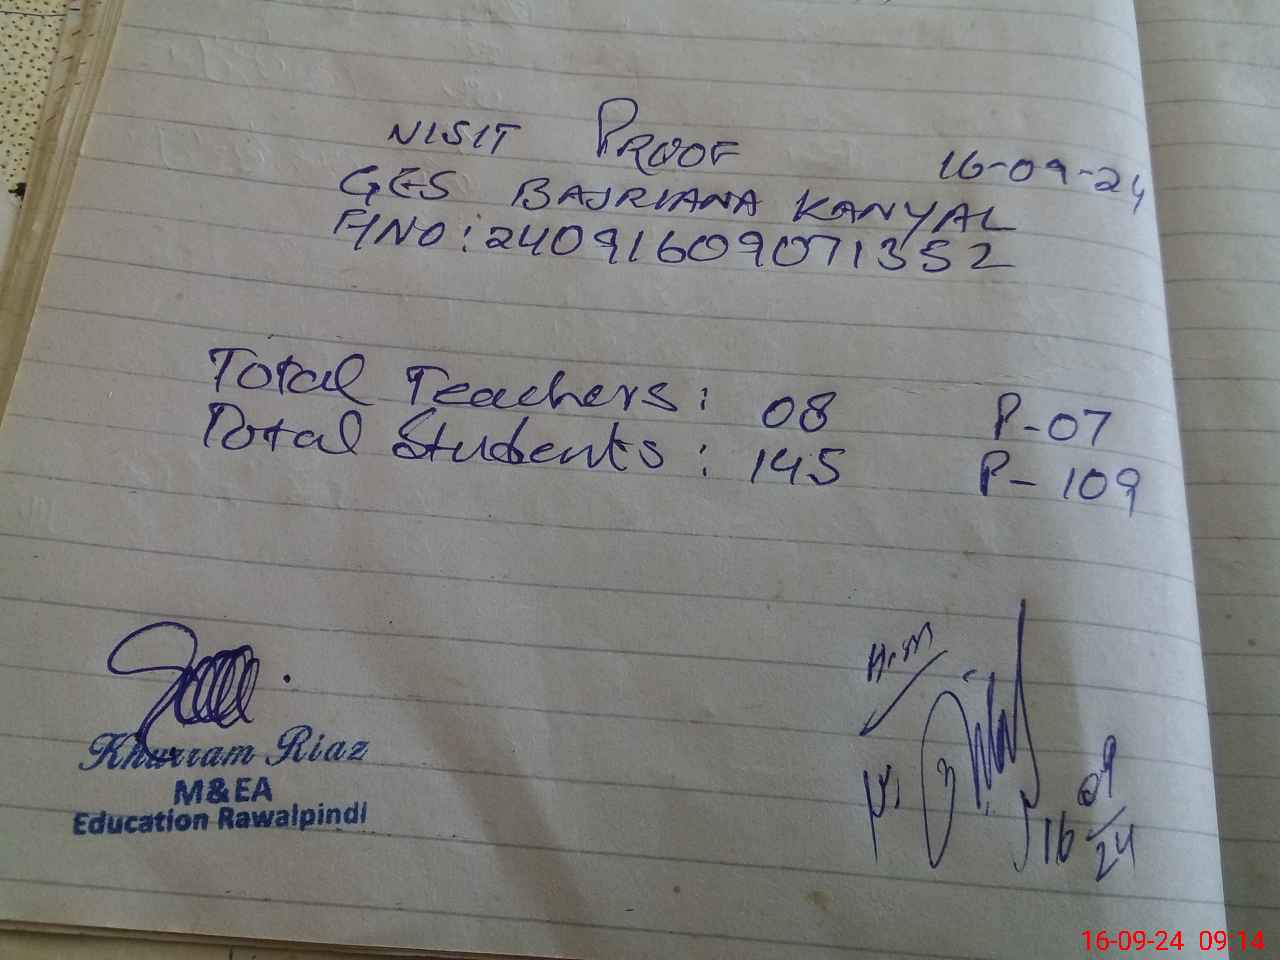 VISIT PROOF 16-09-24
GES BAJRIANA KANYAL
F/NO: 24091609071352
Total Teachers: 08 P-07
Total Students: 145 P-109
Khurram Riaz
M&EA
Education Rawalpindi
16/09/24
16-09-24 09:14